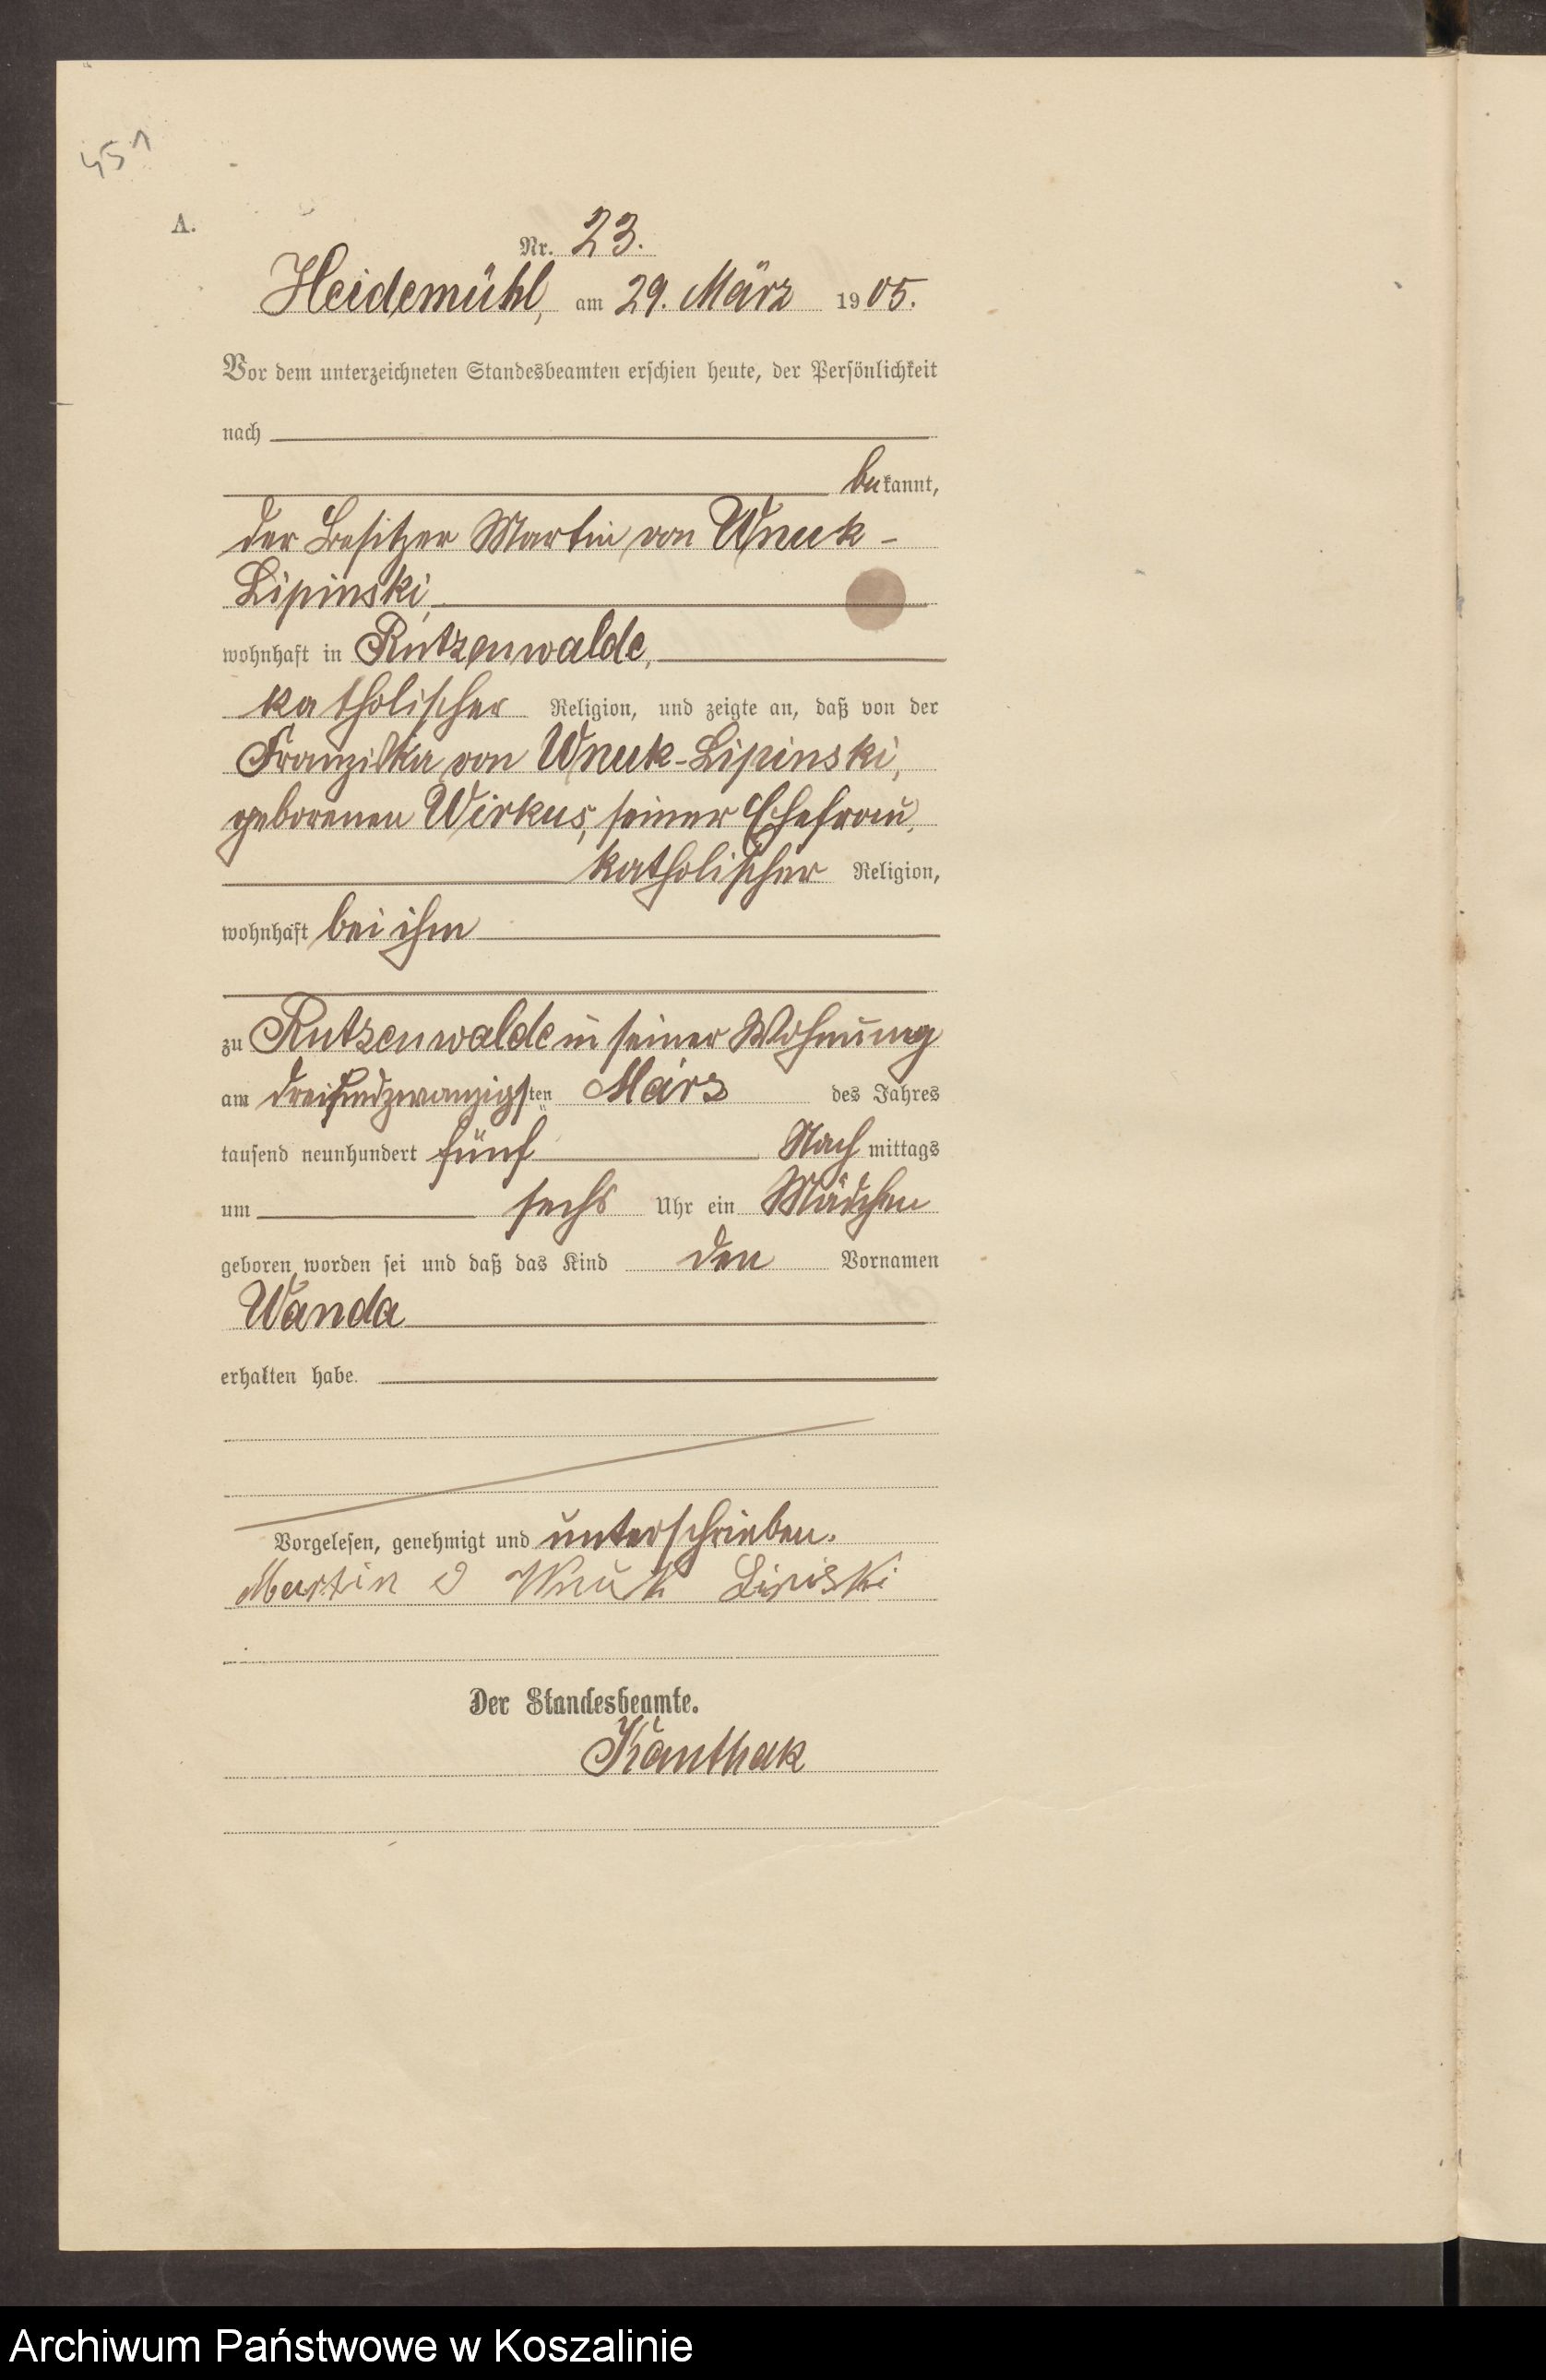 451
A.
Nr. 23.
Heidemühl, am 29. März 1905.
Vor dem unterzeichneten Standesbeamten erschien heute, der Persönlichkeit
nach
bekannt,
der Besitzer Martin von Wnuk-
Lipinski,
wohnhaft in Rutzenwalde,
katholischer Religion, und zeigte an, daß von der
Franziska von Wnuk-Lipinski,
geborenen Wirkus, seiner Ehefrau,
katholischer Religion,
wohnhaft bei ihm
zu Rutzenwalde in seiner Wohnung
am dreiundzwanzigsten März des Jahres
tausend neunhundert fünf Nachmittags
um sechs Uhr ein Mädchen
geboren worden sei und daß das Kind den Vornamen
Wanda
erhalten habe.
Vorgelesen, genehmigt und unterschrieben.
Martin v Wnuk Lipiski
Der Standesbeamte.
Kanthak
Archiwum Państwowe w Koszalinie